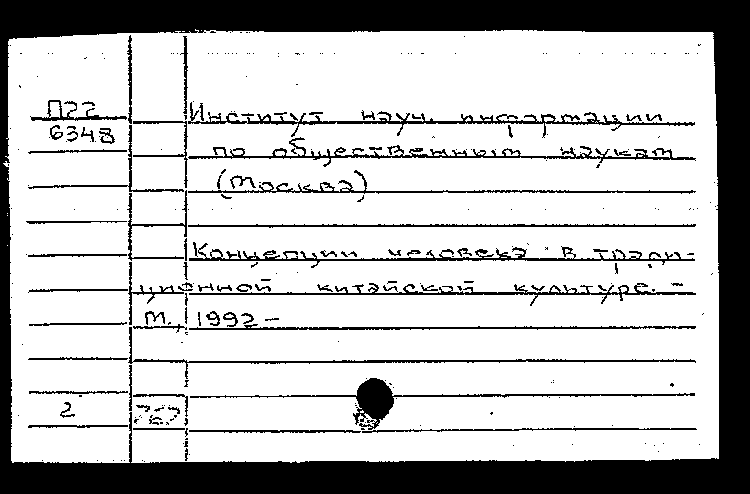 П22
6348
Институт науч. информации
по общественным наукам
(Москва)
Концепции человека в тради-
ционной китайской культуре. -
М., 1992-
2 767